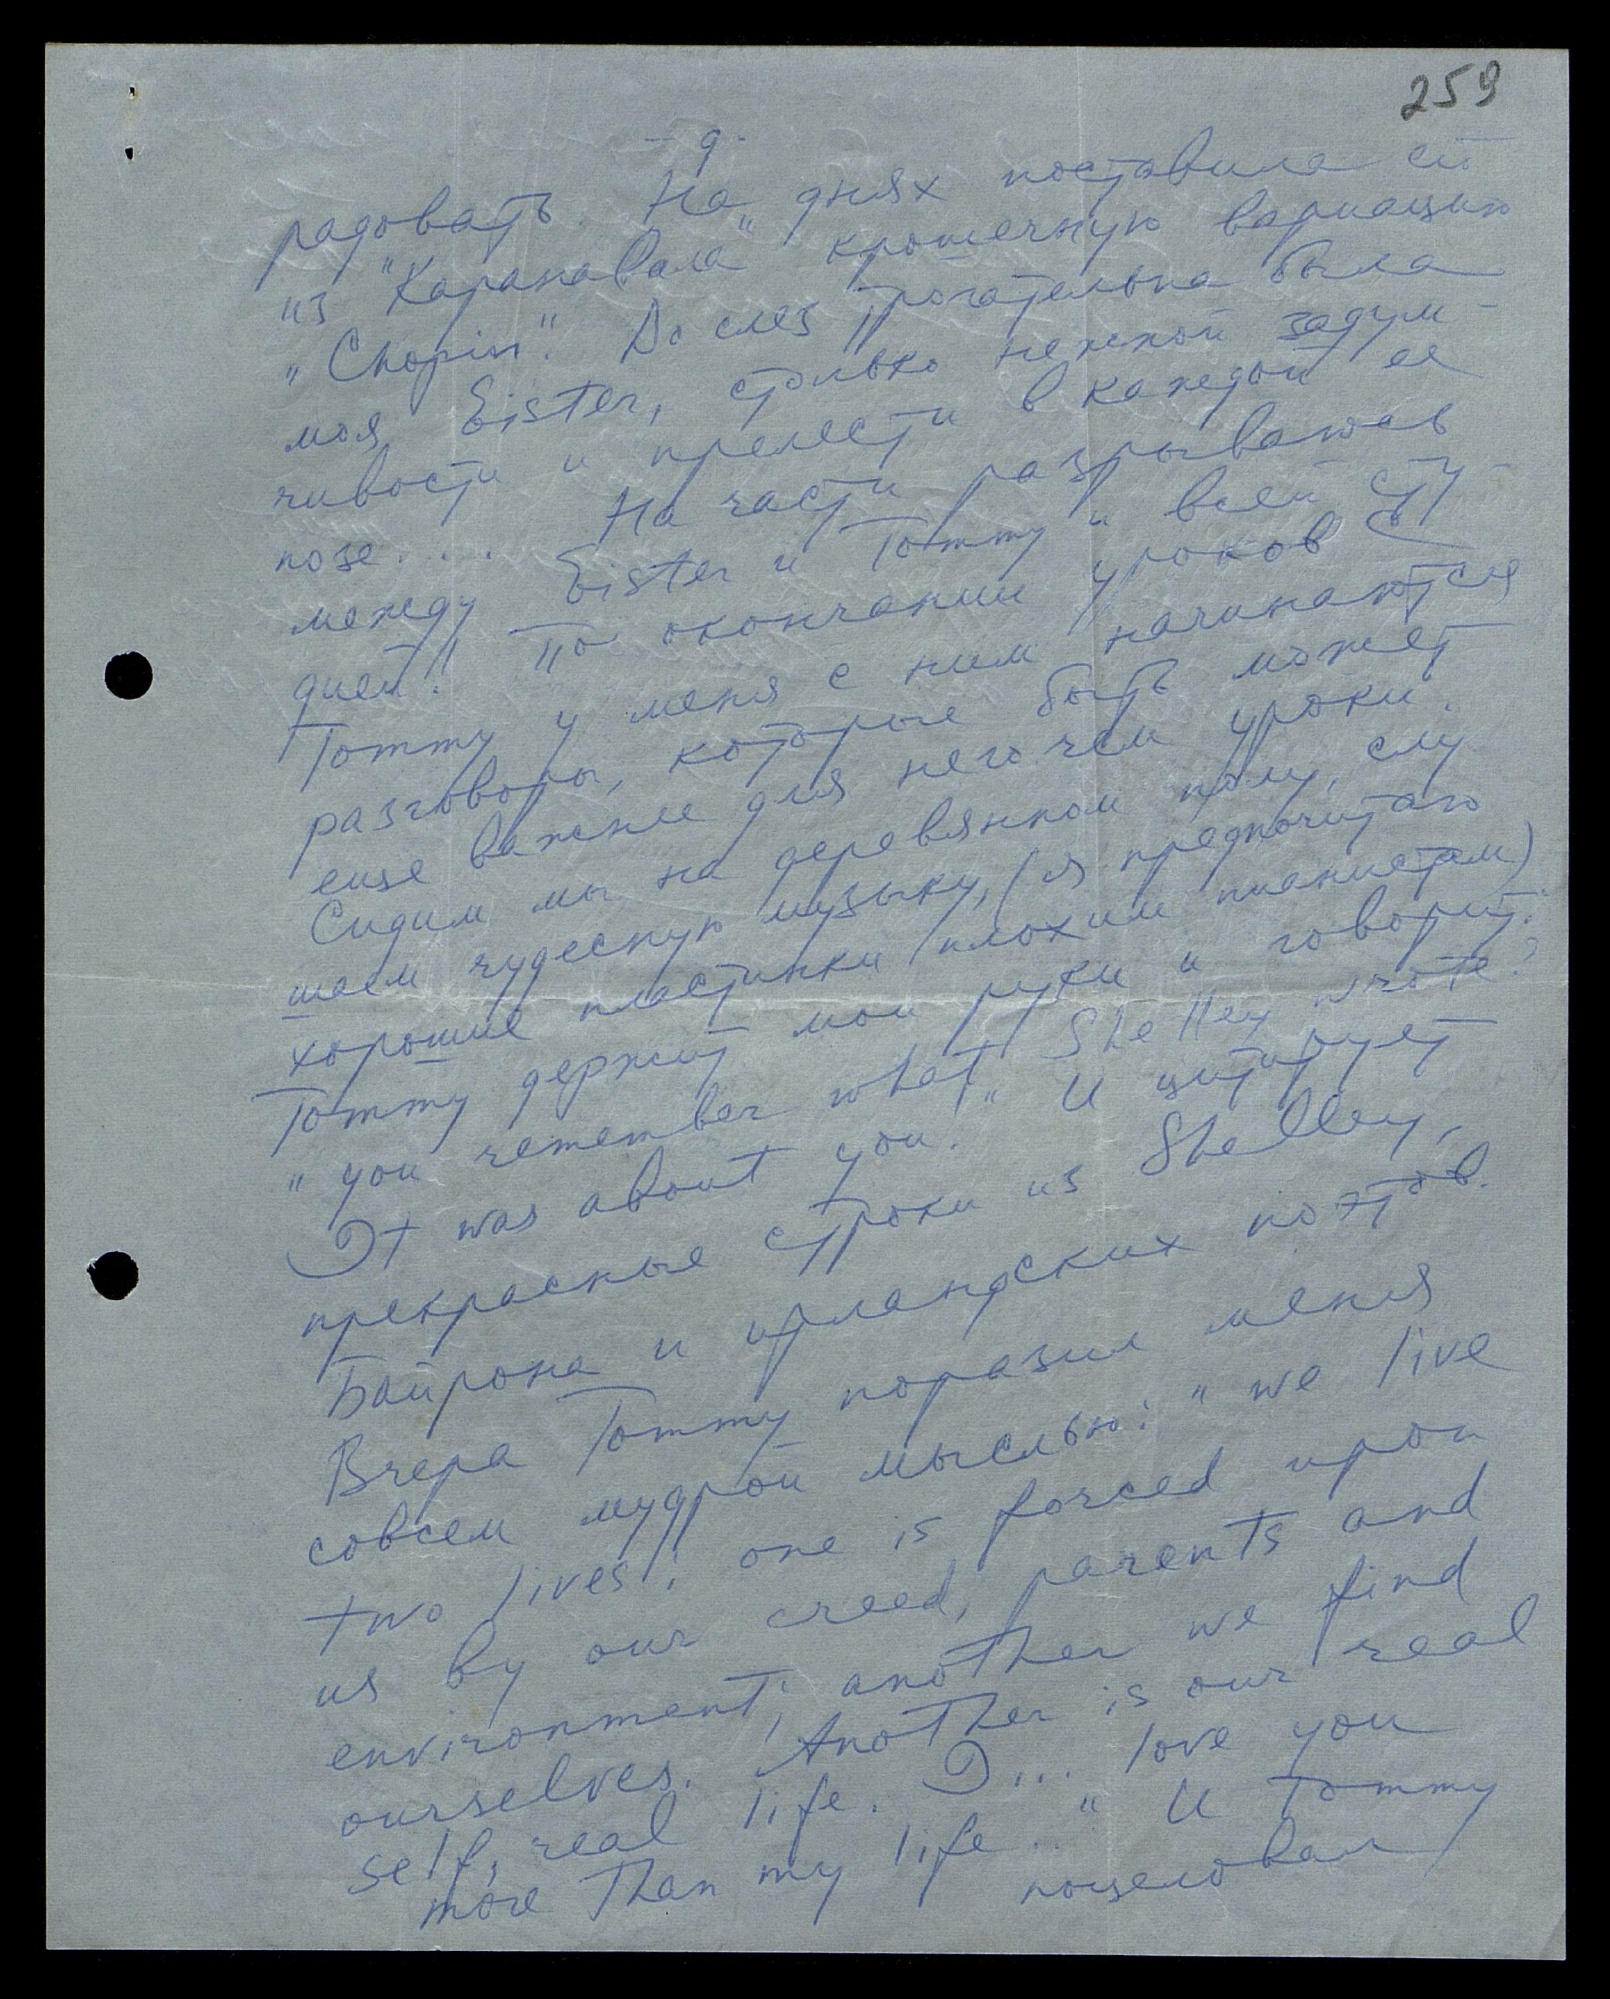 259
- 9 -
радовать. На днях поставила ей
из "Каранавала" крошечную вариацию
"Chopin". До слез трогательна была
моя Eister, столько нежной задум-
чивости и прелести в каждой ее
позе.... На части разрываюсь
между Eister и Tommy и всей сту-
дией! По окончании уроков с
Tommy у меня с ним начинаются
разговоры, которые быть может
еще важнее для него чем уроки.
Сидим мы на деревянном полу, слу
шаем чудесную музыку, (я предпочитаю
хорошие пластинки плохим пианистам)
Tommy держит мои руки и говорит:
"you remember what Shelley wrote?
It was about you!" И цитирует
прекрасные строки из Shelley,
Байрона и ирландских поэтов.
Вчера Tommy поразил меня
совсем мудрой мыслью: "we live
two lives; one is forced upon
us by our creed, parents and
environment; another we find
ourselves. Another is our real
self, real life. I... love you
more than my life..." И Tommy
поцеловал